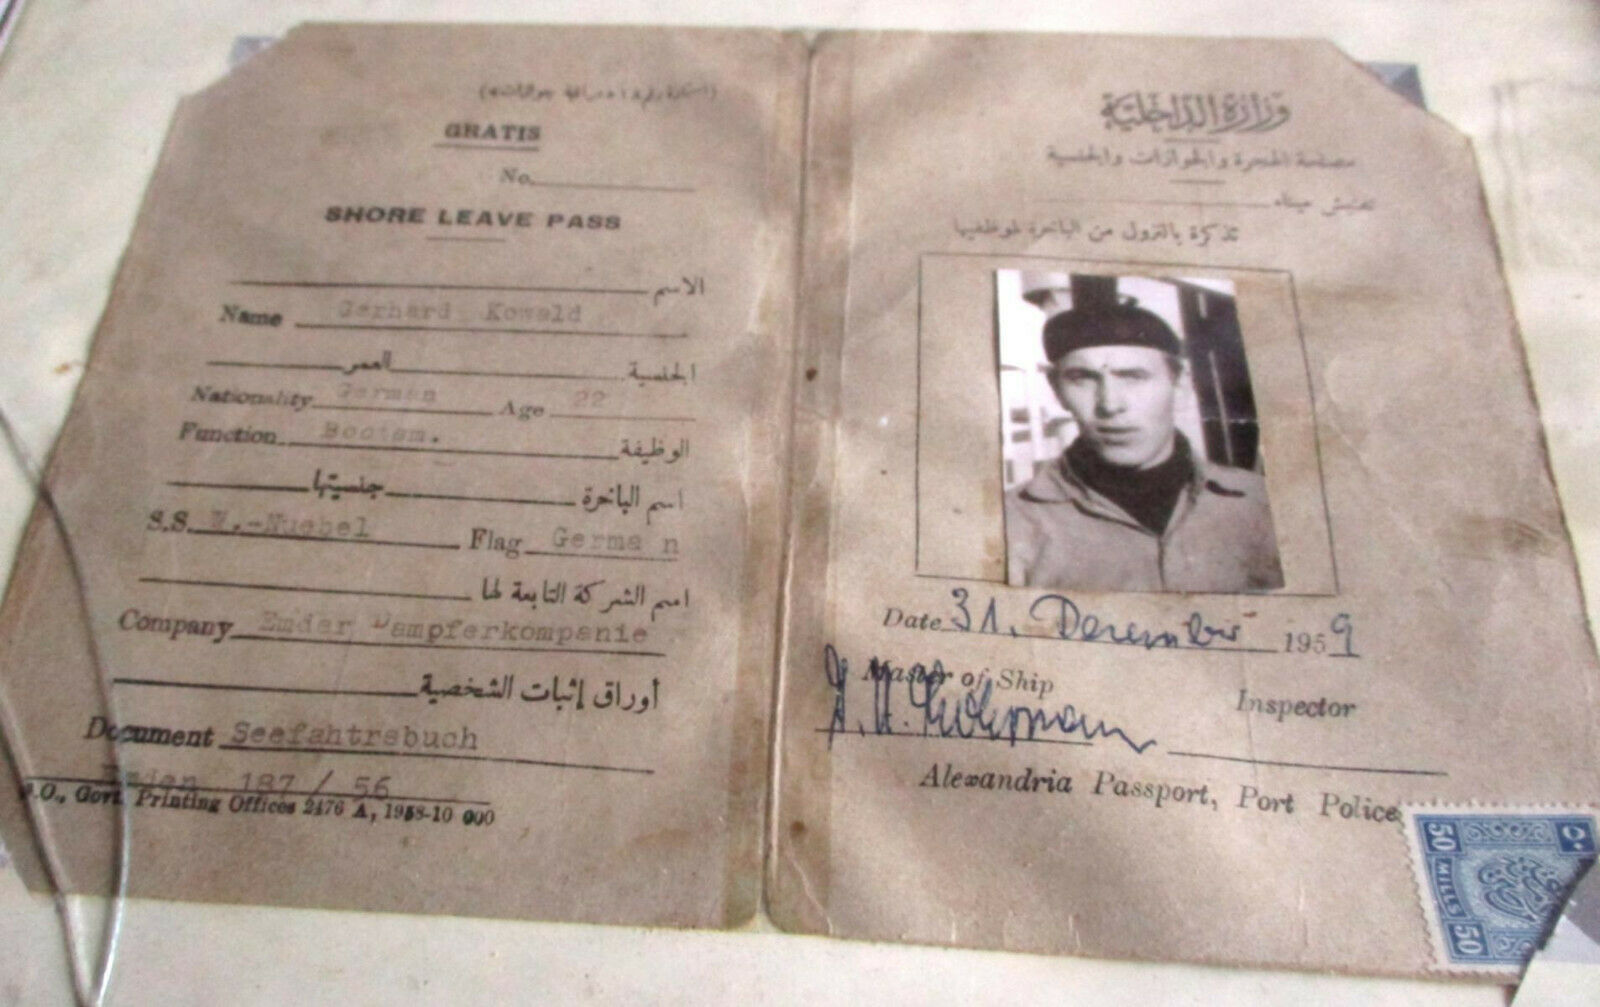 (استمارة رقم
GRATIS
No.
SHORE LEAVE PASS
الاسم
Name Gerhard Kowald
الجنسية العمر
Nationality German Age 22
Function Bootsm.
الوظيفة
اسم الباخرة جنسيتها
S.S. W.-Nuebel Flag Germa n
اسم الشركة التابعة لها
Company Emder Dampferkompanie
أوراق إثبات الشخصية
Document Seefahtrsbuch
Emden 187 / 56
P.O., Govt. Printing Offices 2476 A, 1958-10 000
وزارة الداخلية
مصلحة الهجرة والجوازات والجنسية
تفتيش ميناء
تذكرة بالنزول من الباخرة لموظفيها
Date 31. Dezember 1959
Master of Ship
Inspector
Alexandria Passport, Port Police
50 MILLS 50
٥٠